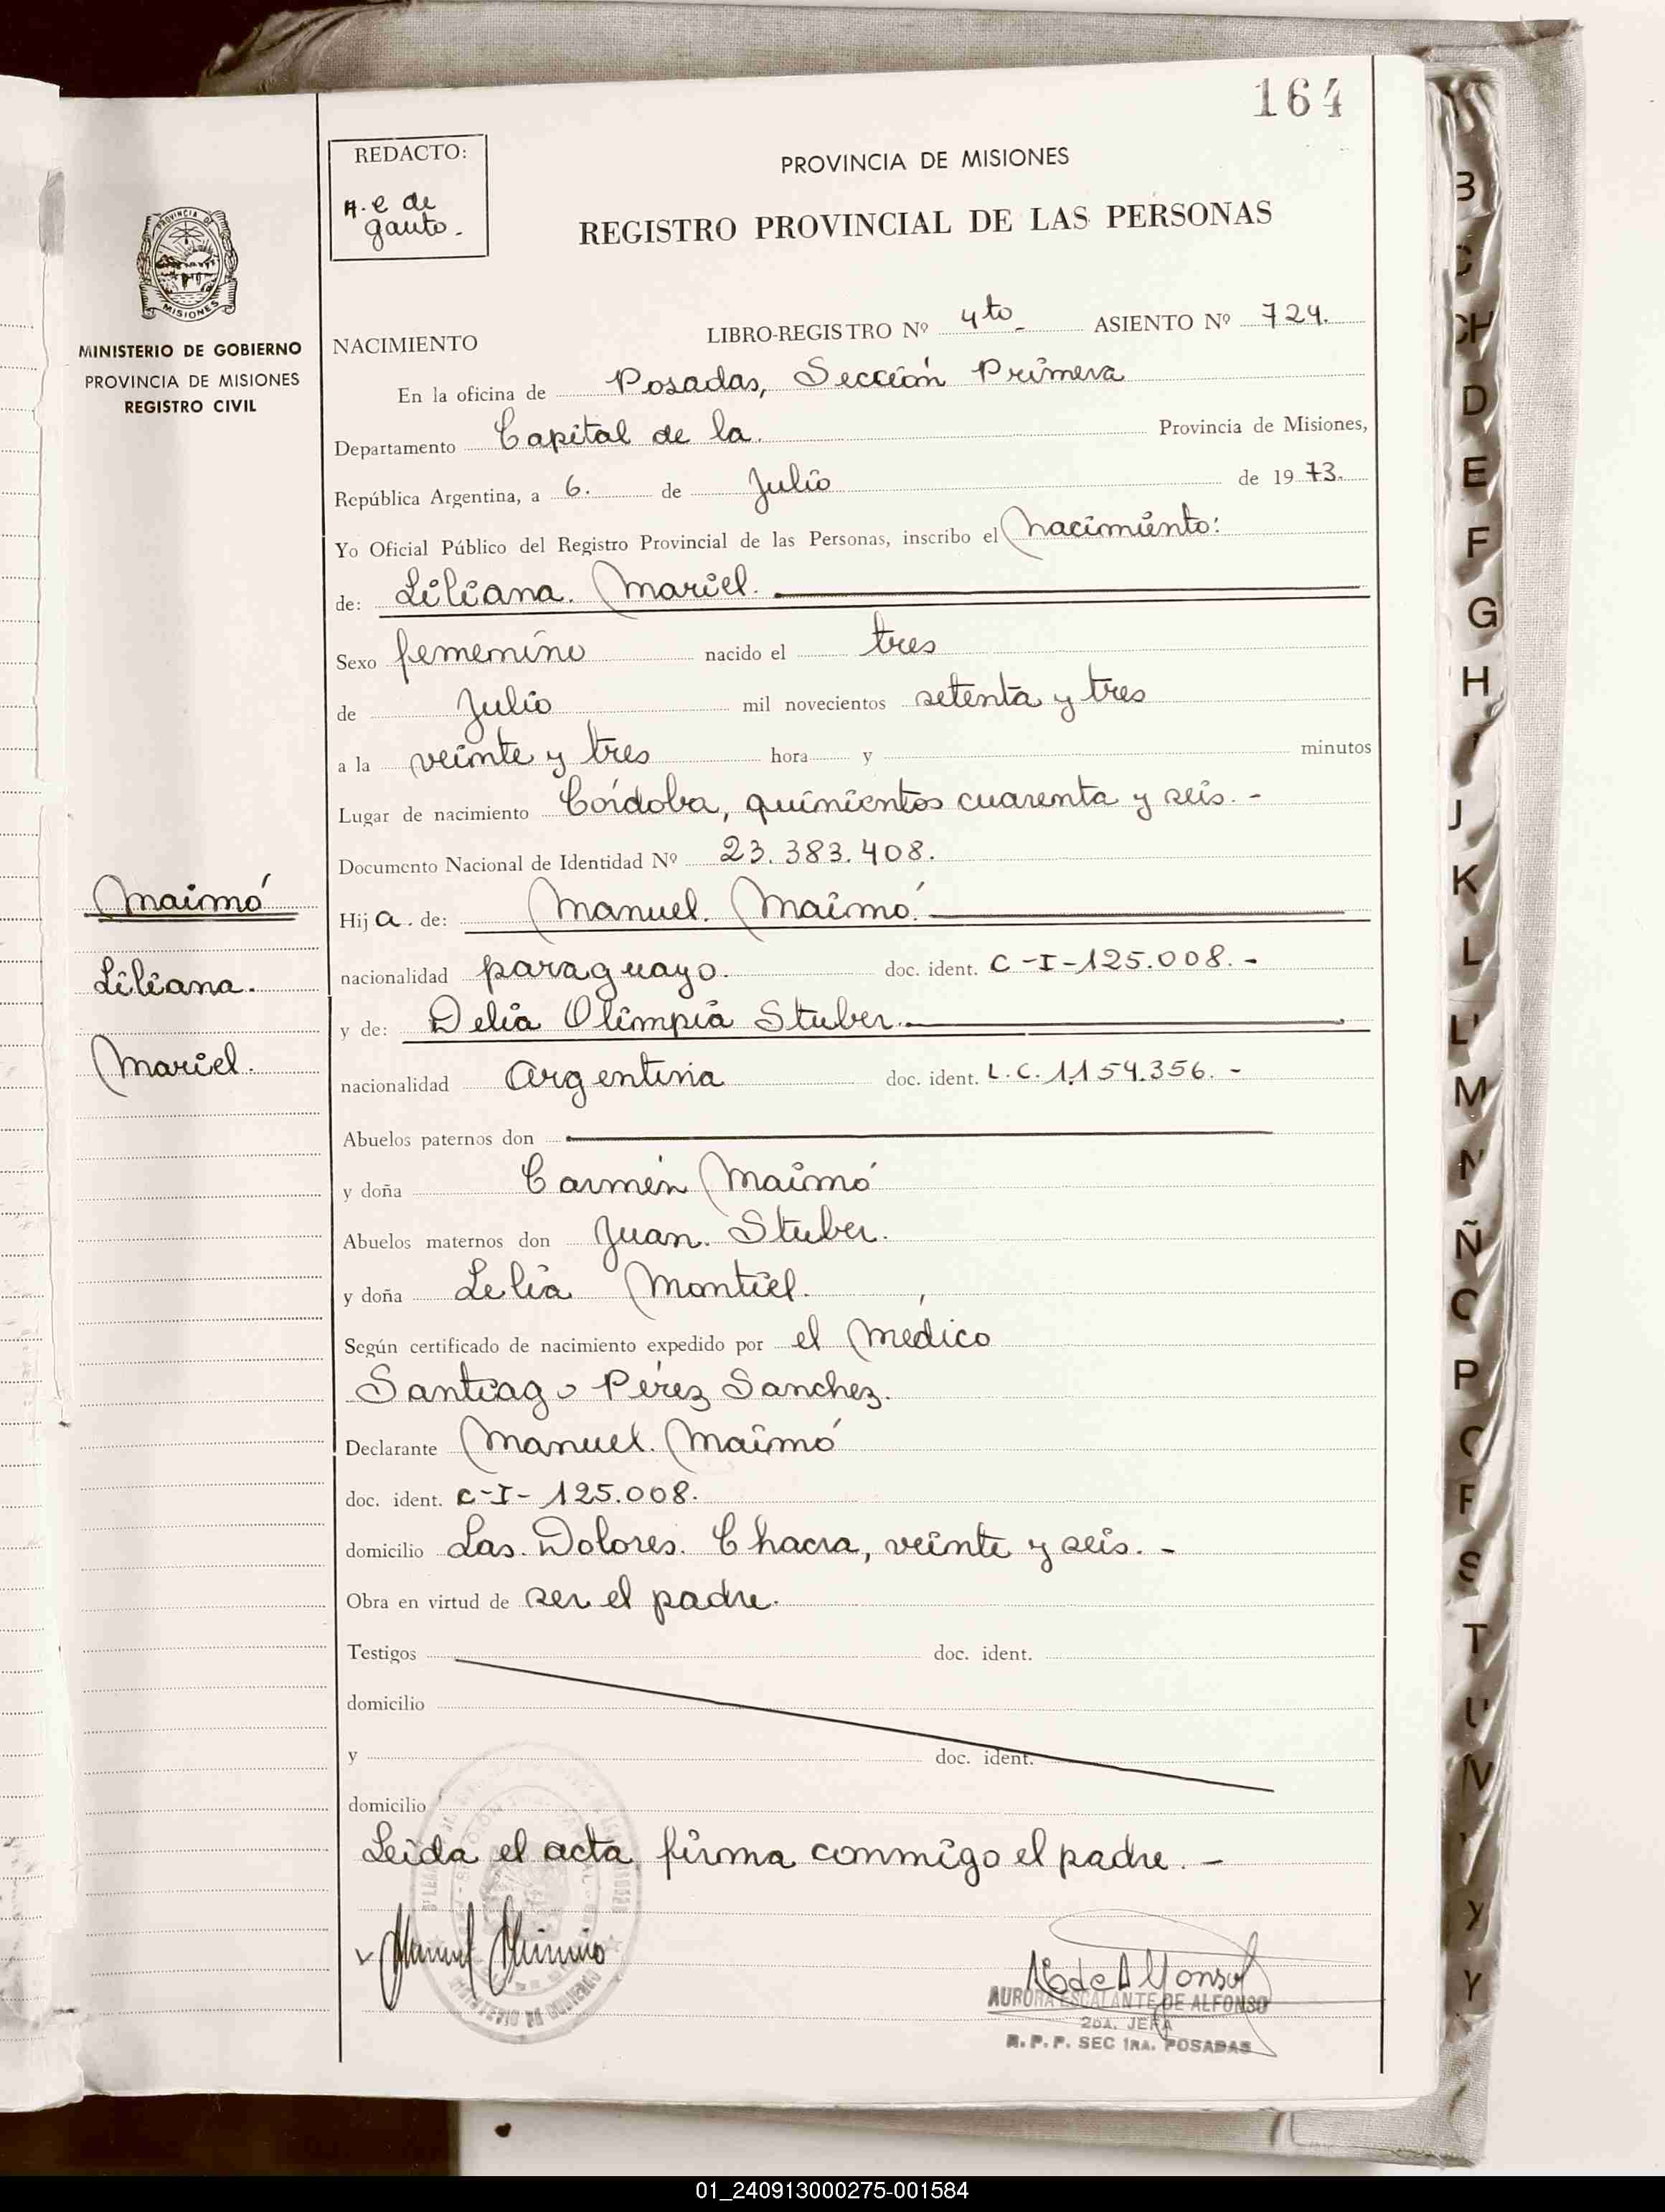 164
REDACTO:
A. e de
gauto.
PROVINCIA DE MISIONES
REGISTRO PROVINCIAL DE LAS PERSONAS
PROVINCIA DE
MISIONES
MINISTERIO DE GOBIERNO
PROVINCIA DE MISIONES
REGISTRO CIVIL
NACIMIENTO LIBRO-REGISTRO Nº 4to. ASIENTO Nº 724.
En la oficina de Posadas, Sección Primera
Departamento Capital de la. Provincia de Misiones,
República Argentina, a 6. de Julio de 1973.
Yo Oficial Público del Registro Provincial de las Personas, inscribo el Nacimiento:
de: Liliana. Mariel.
Sexo femenino nacido el tres
de Julio mil novecientos setenta y tres
a la veinte y tres hora y minutos
Lugar de nacimiento Córdoba, quinientos cuarenta y seis. -
Documento Nacional de Identidad Nº 23.383.408.
Maimó
Hija. de: Manuel. Maimó.
Liliana.
nacionalidad paraguayo. doc. ident. C-I-125.008. -
y de: Delia Olimpia Stuber.
Mariel.
nacionalidad Argentina doc. ident. L.C. 1.154.356. -
Abuelos paternos don
y doña Carmen Maimó
Abuelos maternos don Juan. Stuber.
y doña Lelia Montiel.
Según certificado de nacimiento expedido por el Médico
Santiago Pérez Sanchez.
Declarante Manuel. Maimó
doc. ident. C-I-125.008.
domicilio Las. Dolores. Chacra, veinte y seis. -
Obra en virtud de ser el padre.
Testigos doc. ident.
domicilio
y doc. ident.
domicilio
Leida el acta firma conmigo el padre. -
AURORA ESCALANTE DE ALFONSO
2DA. JEFA
R. P. P. SEC 1RA. POSADAS
B
C
CH
D
E
F
G
H
I
J
K
L
LL
M
N
Ñ
O
P
Q
R
S
T
U
V
Y
Y
01_240913000275-001584